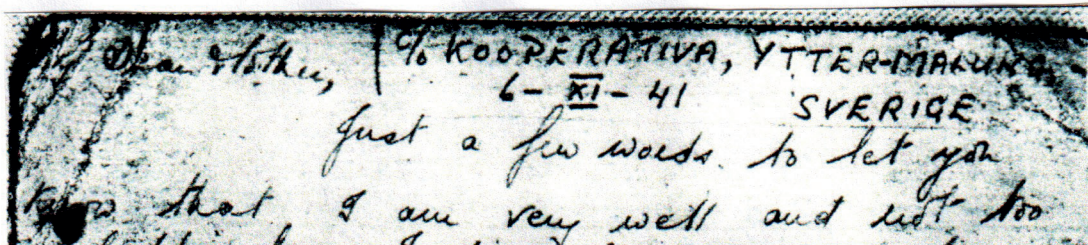 Dear Mother, c/o KOOPERATIVA, YTTER-MALUNG,
6 - XI - 41 SVERIGE
Just a few words to let you
know that I am very well and not too